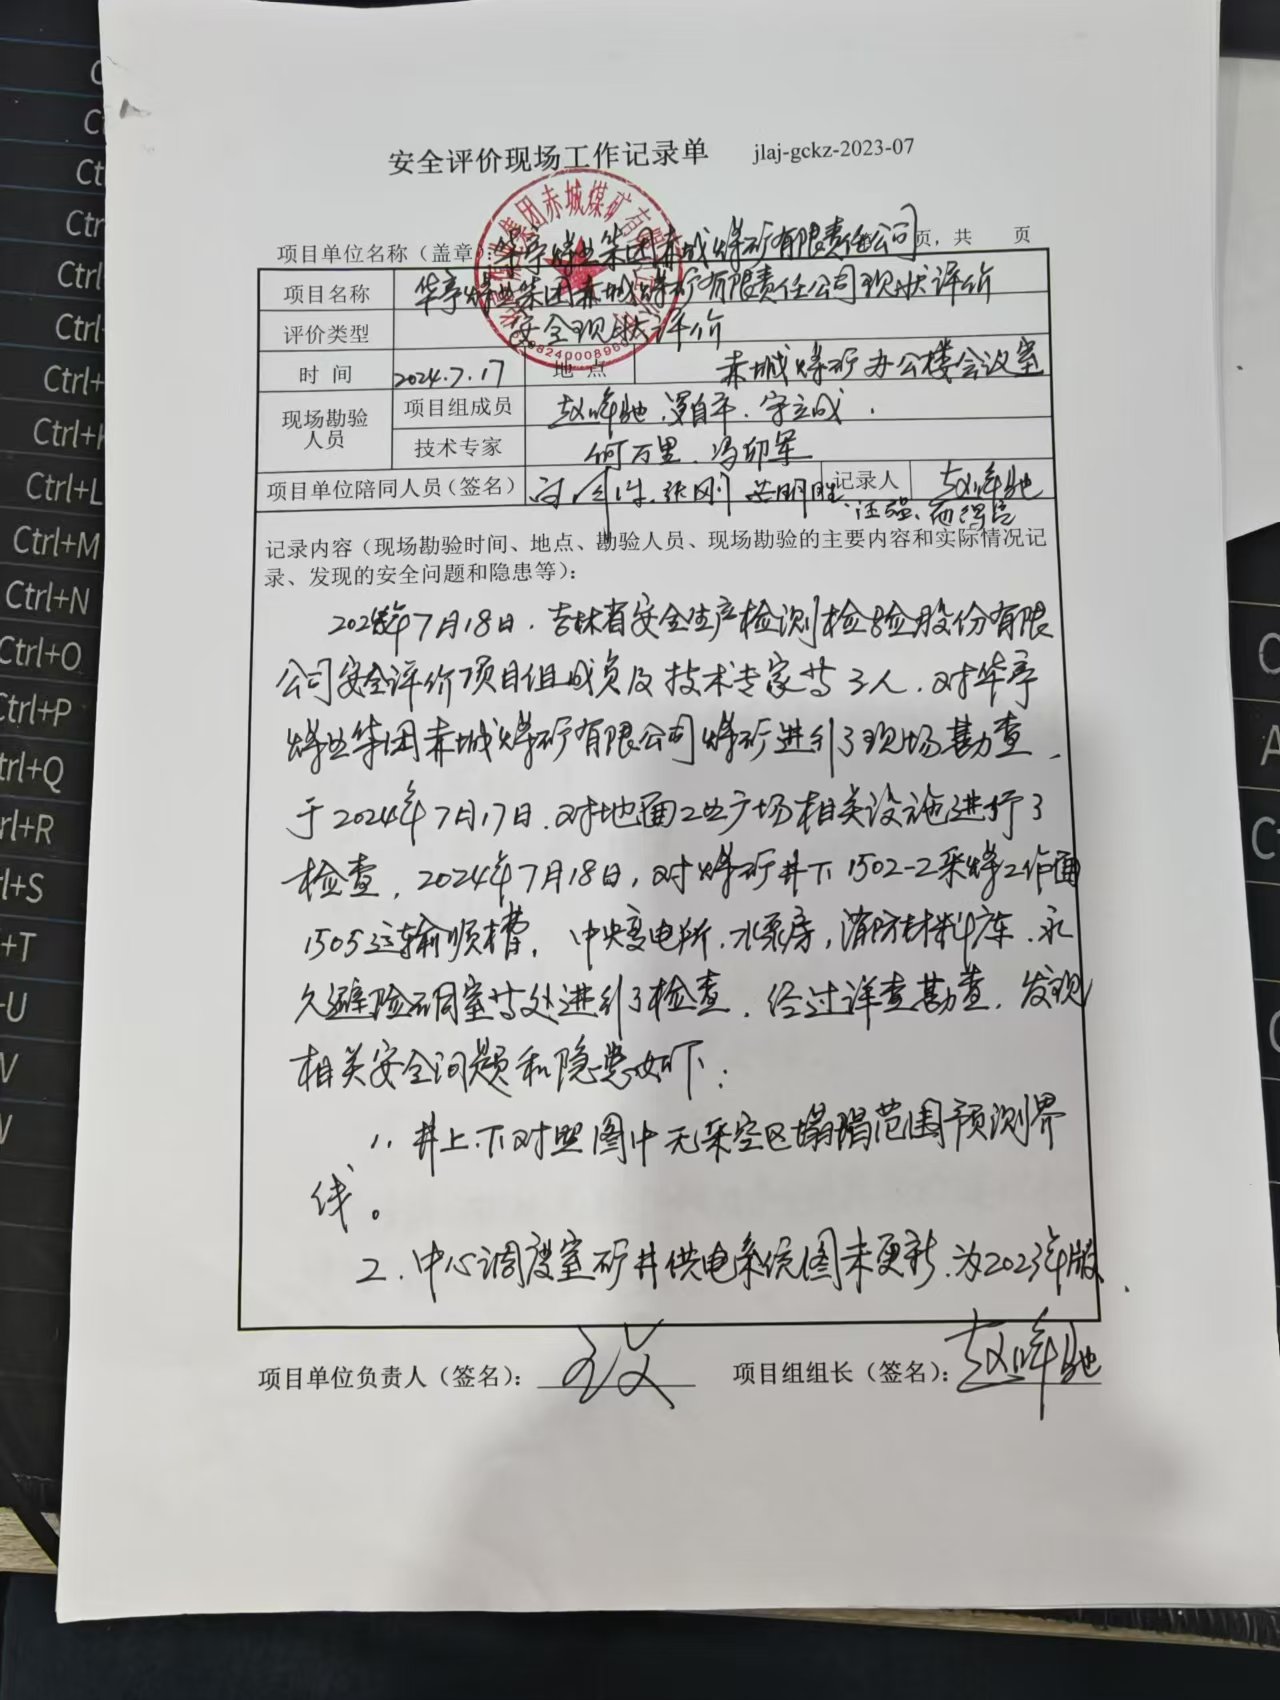 安全评价现场工作记录单 jlaj-gckz-2023-07
项目单位名称（盖章）：华亭煤业集团赤城煤矿有限责任公司 页，共 页
项目名称 华亭煤业集团赤城煤矿有限责任公司现状评价
评价类型 安全现状评价
时 间 2024.7.17 地 点 赤城煤矿办公楼会议室
现场勘验人员 项目组成员 赵峰驰
技术专家 何万里、冯卯军
项目单位陪同人员（签名） 张刚 记录人 赵峰驰
汪强
记录内容（现场勘验时间、地点、勘验人员、现场勘验的主要内容和实际情况记
录、发现的安全问题和隐患等）：
2024年7月18日，吉林省安全生产检测检验股份有限
公司安全评价项目组成员及技术专家等3人，对华亭
煤业集团赤城煤矿有限公司煤矿进行了现场勘查，
于2024年7月17日，对地面工业广场相关设施进行了
检查，2024年7月18日，对煤矿井下1502-2采煤工作面
1505运输顺槽，中央变电所，水泵房，消防材料库、永
久避险硐室等处进行了检查，经过详查勘查，发现
相关安全问题和隐患如下：
1、井上、下对照图中无采空区塌陷范围预测界
线。
2、中心调度室矿井供电系统图未更新，为2023年版。
项目单位负责人（签名）： 项目组组长（签名）：赵峰驰
Ctrl+L
Ctrl+M
Ctrl+N
Ctrl+O
Ctrl+P